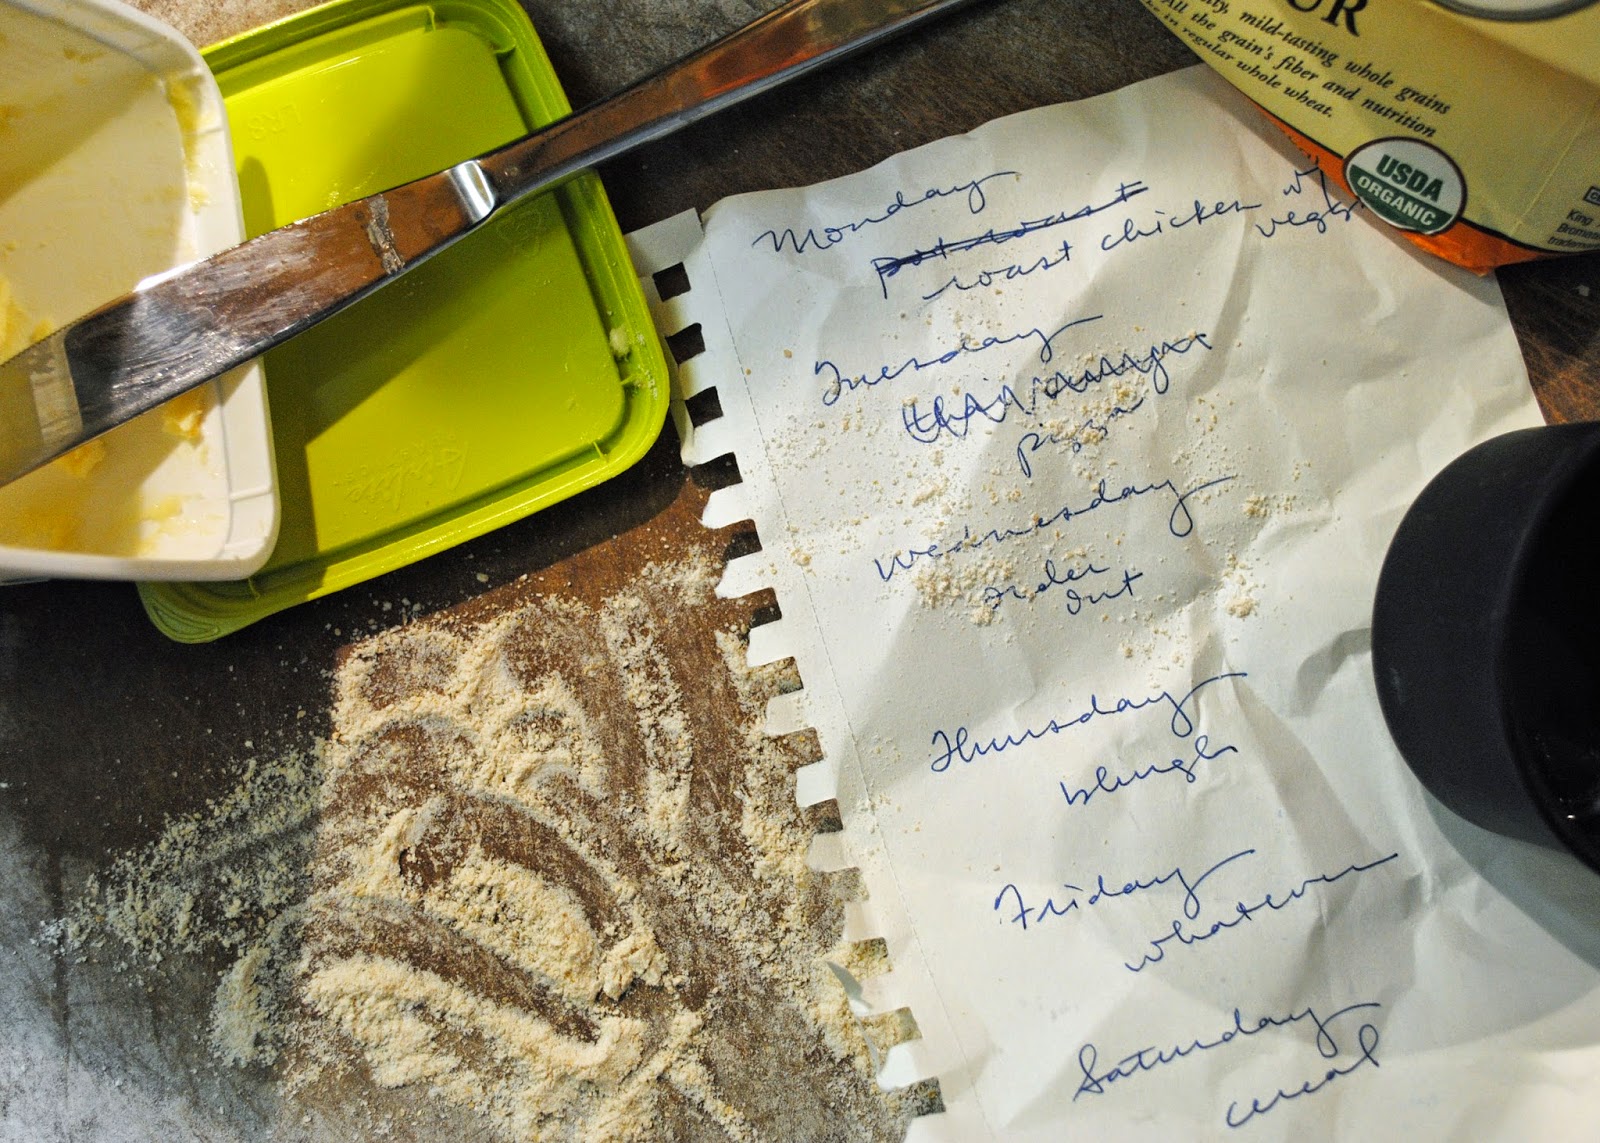 UR
mild-tasting whole grains
All the grain's fiber and nutrition
in regular whole wheat.
USDA
ORGANIC
King
Monday
pot roast
roast chicken w/
veggies
Tuesday
thai curry
pizza
Wednesday
order
out
Thursday
blurgh
Friday
whatever
Saturday
cereal